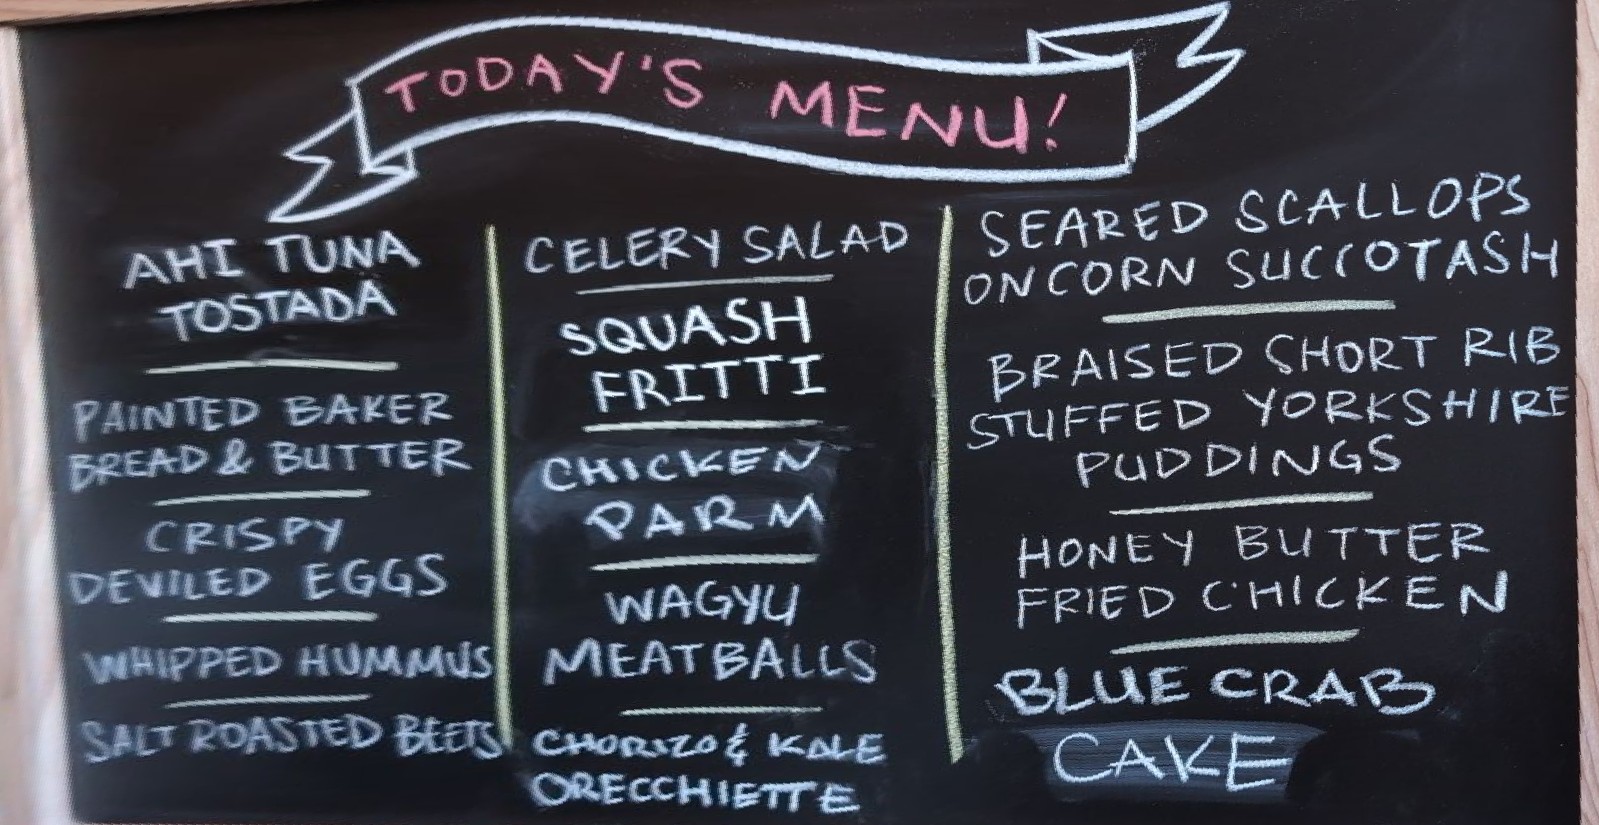 TODAY'S MENU!
AHI TUNA
TOSTADA
PAINTED BAKER
BREAD & BUTTER
CRISPY
DEVILED EGGS
WHIPPED HUMMUS
SALT ROASTED BEETS
CELERY SALAD
SQUASH
FRITTI
CHICKEN
PARM
WAGYU
MEATBALLS
CHORIZO & KALE
ORECCHIETTE
SEARED SCALLOPS
ON CORN SUCCOTASH
BRAISED SHORT RIB
STUFFED YORKSHIRE
PUDDINGS
HONEY BUTTER
FRIED CHICKEN
BLUE CRAB
CAKE